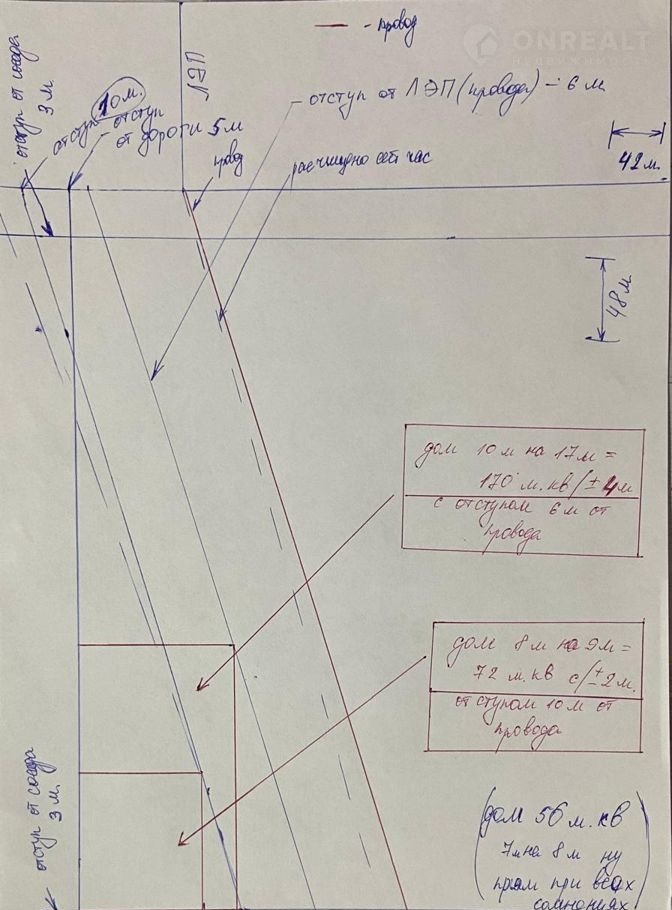 — - провод
ONREALT
НЕДВИЖИМОСТЬ
отступ от соседа
3 м
отступ 10 м.
отступ
от дороги 5 м
ЛЭП
провод
расчищено сейчас
- отступ от ЛЭП (провода) - 6 м
42 м.
48 м
дом 10 м на 17 м =
170 м.кв (± 4 м
с отступом 6 м от
провода
дом 8 м на 9 м =
72 м.кв с (± 2 м.
отступом 10 м от
провода
отступ от соседа
3 м.
(дом 56 м.кв
7 м на 8 м ну
прям при всех
сомнениях)